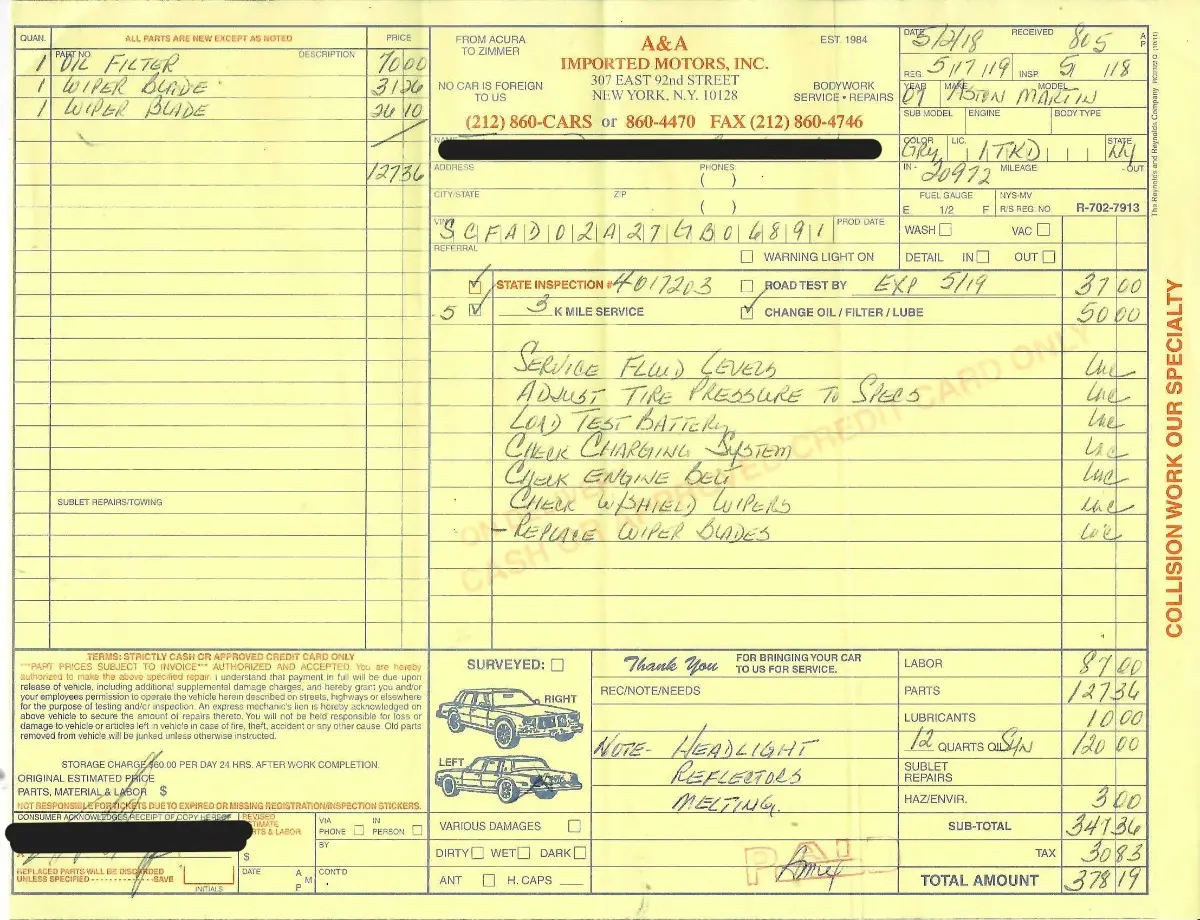 QUAN. ALL PARTS ARE NEW EXCEPT AS NOTED PRICE
PART NO. DESCRIPTION
1 OIL FILTER 70 00
1 WIPER BLADE 31 26
1 WIPER BLADE 26 10
127 36
SUBLET REPAIRS/TOWING
FROM ACURA
TO ZIMMER
NO CAR IS FOREIGN
TO US
A&A
IMPORTED MOTORS, INC.
307 EAST 92nd STREET
NEW YORK, N.Y. 10128
EST. 1984
BODYWORK
SERVICE • REPAIRS
(212) 860-CARS or 860-4470 FAX (212) 860-4746
NAME
ADDRESS PHONES
( )
CITY/STATE ZIP
( )
VIN SCFAD02A27GB06891 PROD DATE
REFERRAL
WARNING LIGHT ON
DATE 5/2/18 RECEIVED 805 A P
REG. 5/17/19 INSP. 5/ /18
YEAR 07 MAKE ASTON MARTIN MODEL
SUB MODEL ENGINE BODY TYPE
COLOR GRY LIC. 1TKD STATE NY
IN - 20972 MILEAGE - OUT
FUEL GAUGE NYS-MV
E 1/2 F R/S REG. NO R-702-7913
WASH VAC
DETAIL IN OUT
STATE INSPECTION # 4017203 ROAD TEST BY EXP 5/19 37 00
5 3 K MILE SERVICE CHANGE OIL / FILTER / LUBE 50 00
SERVICE FLUID LEVELS Inc
ADJUST TIRE PRESSURE TO SPECS Inc
LOAD TEST BATTERY Inc
CHECK CHARGING SYSTEM Inc
CHECK ENGINE BELT Inc
CHECK W/SHIELD WIPERS Inc
- REPLACE WIPER BLADES Inc
CASH OR APPROVED CREDIT CARD ONLY
COLLISION WORK OUR SPECIALTY
The Reynolds and Reynolds Company
TERMS: STRICTLY CASH OR APPROVED CREDIT CARD ONLY
***PART PRICES SUBJECT TO INVOICE*** AUTHORIZED AND ACCEPTED. You are hereby
authorized to make the above specified repair. I understand that payment in full will be due upon
release of vehicle, including additional supplemental damage charges, and hereby grant you and/or
your employees permission to operate the vehicle herein described on streets, highways or elsewhere
for the purpose of testing and/or inspection. An express mechanic's lien is hereby acknowledged on
above vehicle to secure the amount of repairs thereto. You will not be held responsible for loss or
damage to vehicle or articles left in vehicle in case of fire, theft, accident or any other cause. Old parts
removed from vehicle will be junked unless otherwise instructed.
STORAGE CHARGE $60.00 PER DAY 24 HRS. AFTER WORK COMPLETION.
ORIGINAL ESTIMATED PRICE
PARTS, MATERIAL & LABOR $
NOT RESPONSIBLE FOR TICKETS DUE TO EXPIRED OR MISSING REGISTRATION/INSPECTION STICKERS.
CONSUMER ACKNOWLEDGES RECEIPT OF COPY HEREOF
REVISED
ESTIMATE
PARTS & LABOR
$
VIA
PHONE
IN
PERSON
BY
DATE A M P
CONT'D
REPLACED PARTS WILL BE DISCARDED
UNLESS SPECIFIED - - - - - - - - - - - -SAVE
INITIALS
SURVEYED:
RIGHT
LEFT
VARIOUS DAMAGES
DIRTY WET DARK
ANT H. CAPS
Thank You FOR BRINGING YOUR CAR
TO US FOR SERVICE.
REC/NOTE/NEEDS
NOTE- HEADLIGHT
REFLECTORS
MELTING.
PAID
Amex
LABOR 87 00
PARTS 127 36
LUBRICANTS 10 00
12 QUARTS OIL SYN 120 00
SUBLET
REPAIRS
HAZ/ENVIR. 3 00
SUB-TOTAL 347 36
TAX 30 83
TOTAL AMOUNT 378 19